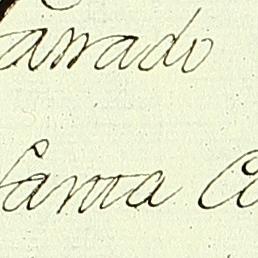 arrado
fanta Co